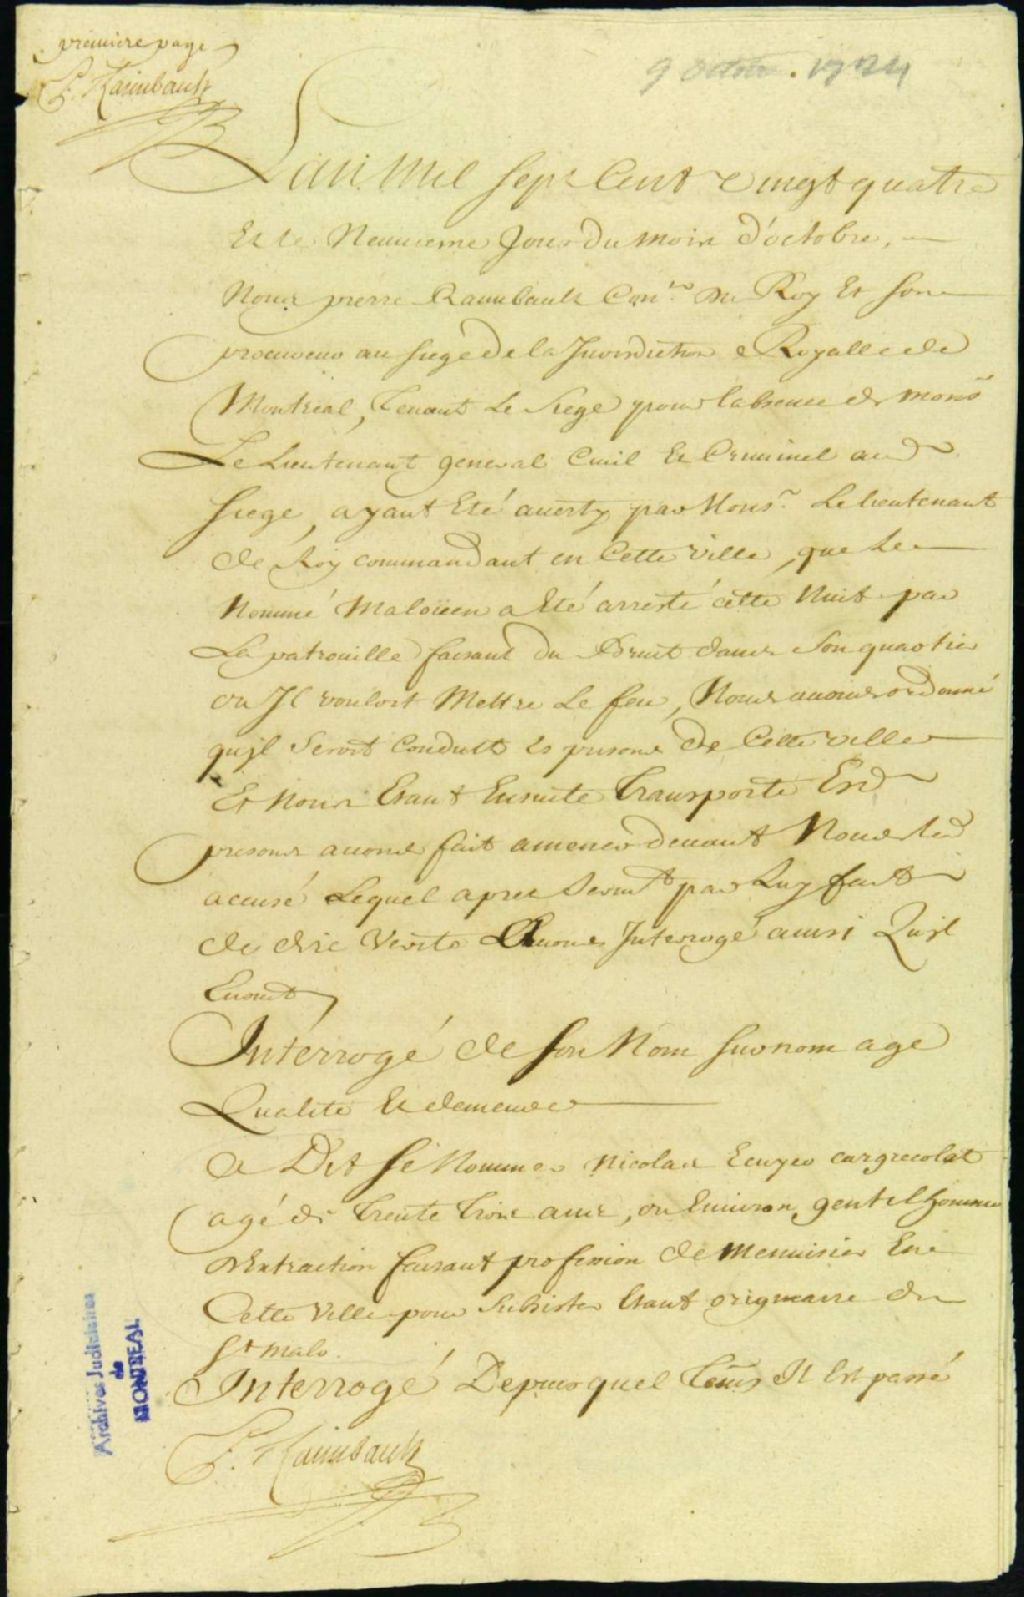 premiere page
P. Raimbault
9 octobre. 1724
Lan mil sept Cent vingt quatre
Et le Neuvieme Jour du mois d'octobre,
Nous pierre Raimbault Con.er du Roy Et son
procureur au siege de la Jurisdiction Royalle de
Montreal, tenant Le Siege pour labsence de mons
Le Lieutenant general Civil Et Criminel aud
Siege, ayant Eté averty par Mons.r Le lieutenant
de Roy commandant en Cette ville, que Le
Nommé Maloüen a Eté arresté cette Nuit par
La patrouille faisant du Bruit dans son quartier
ou Jl vouloit Mettre Le feu, Nous avons ordonné
qujl Seroit Conduit Es prisons de Cette ville
Et Nous Etant Ensuite Transporté Esd
prisons avons fait amener devant Nous led
accusé Lequel apres Serm.t par Luy fait
de dire Verité Lavons Interrogé ainsi Qujl
Ensuit
Interrogé de son Nom surnom age
Qualité Et demeure
A Dit se Nommer Nicolas Ecuyer
agé de Trente Trois ans, ou Environ, gentilhomme
dExtraction faisant profession de Menuisier En
Cette Ville pour Subsister Etant origineaire de
St malo.
Interrogé Depuis quel Tems Il Est passé
P. Raimbault
Archives Judiciaires
de
MONTREAL